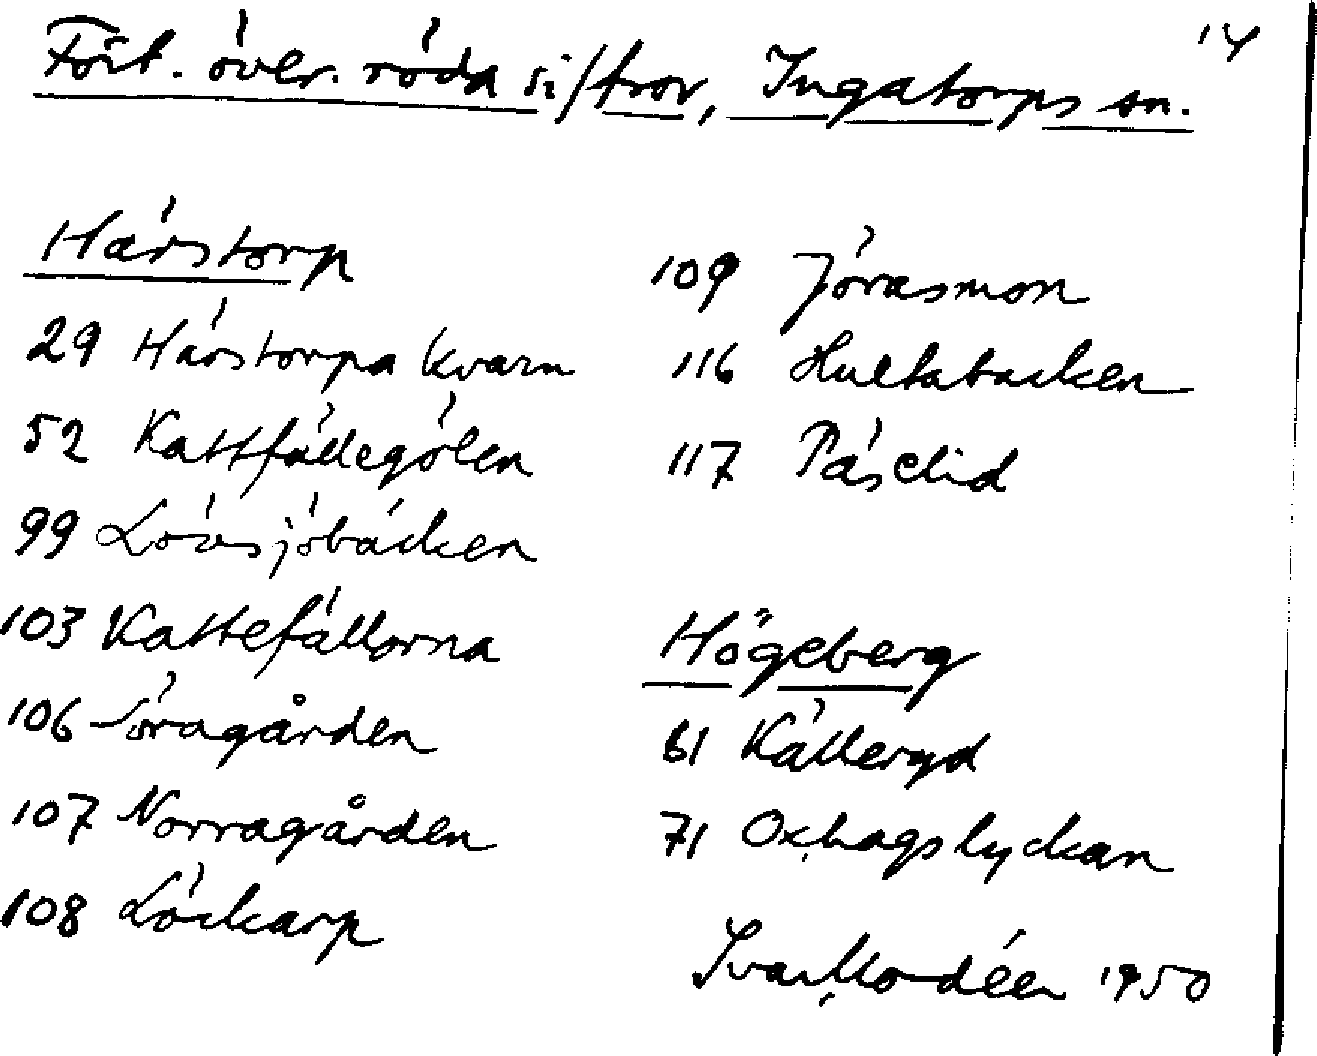 14
Fört. över röda siffror, Ingatorps sn.
Härstorp
29 Härstorpa kvarn
52 Kattfällegölen
99 Lövsjöbäcken
103 Kattefällorna
106 Söragården
107 Norragården
108 Löckarp
109 Jörasmon
116 Hultabacken
117 Päselid
Högeberg
61 Källeryd
71 Oxhagslyckan
Ivar Modéer 1950